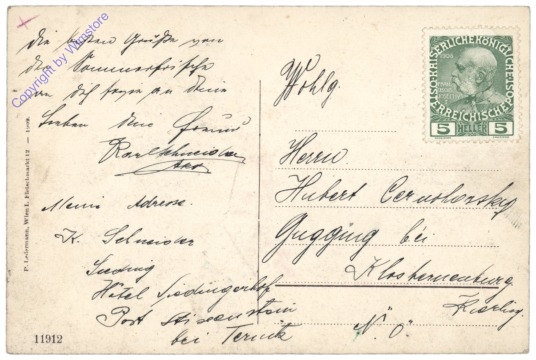 Die besten Grüße von
der Sommerfrische
an Dich sowie an Deine
Lieben Dein Freund
Karl Schneider
Meine Adresse.
K. Schneider
Sieding
Hôtel Siedingerhof
Post Stixenstein
bei Ternitz
P. Ledermann, Wien I., Fleischmarkt 12 — 1909.
11912
Copyright by Wnrstore
1908
KAISERLICHE KÖNIGLICHE
ÖSTERREICHISCHE POST
5 HELLER 5
Wohlg.
Herrn
Hubert
Gugging bei
Klosterneuburg
Kierling
N. Ö.